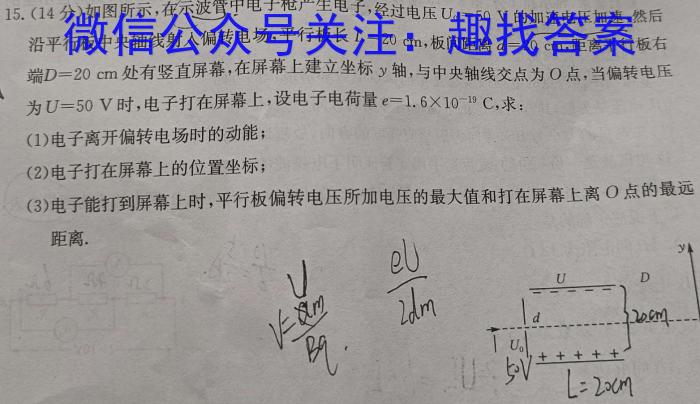 15.(14分)如图所示,在示波管中电子枪产生电子,经过电压U 50 V的加速电压加速,然后
微信公众号关注:趣找答案
沿平行板中央轴线射入偏转电场,平行板长L 20 cm,板间距离d= 0 cm,距离平行板右
端D=20 cm处有竖直屏幕,在屏幕上建立坐标y轴,与中央轴线交点为O点,当偏转电压
为U=50 V时,电子打在屏幕上,设电子电荷量e=1.6×10⁻¹⁹ C,求:
(1)电子离开偏转电场时的动能;
(2)电子打在屏幕上的位置坐标;
(3)电子能打到屏幕上时,平行板偏转电压所加电压的最大值和打在屏幕上离O点的最远
距离.
eU
2dm
V=
Bq
y
U D
d
20cm
U₀
50V
+ + + + +
L=20cm